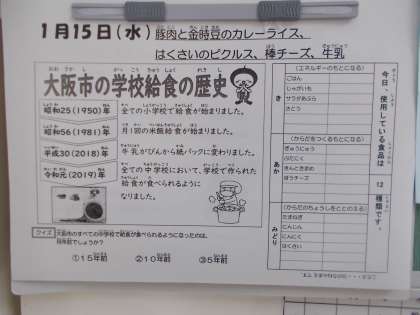 1月15日(水) 豚肉と金時豆のカレーライス、
はくさいのピクルス、棒チーズ、牛乳
大阪市の学校給食の歴史
昭和25(1950)年 全ての小学校で給食が始まりました。
昭和56(1981)年 月1回の米飯給食が始まりました。
平成30(2018)年 牛乳がびんから紙パックに変わりました。
令和元(2019)年 全ての中学校において、学校で作られた
給食が食べられるように
なりました。
クイズ 大阪市のすべての中学校で給食が食べられるようになったのは、
何年前でしょうか？
①15年前 ②10年前 ③5年前
今日、使用している食品は 12 種類です。
き
(エネルギーのもとになる)
ごはん
じゃがいも
サラダあぶら
さとう
あか
(からだをつくるもとになる)
ぎゅうにゅう
ぶたにく
きんときまめ
ぼうチーズ
みどり
(からだのちょうしをととのえる)
たまねぎ
にんじん
にんにく
はくさい